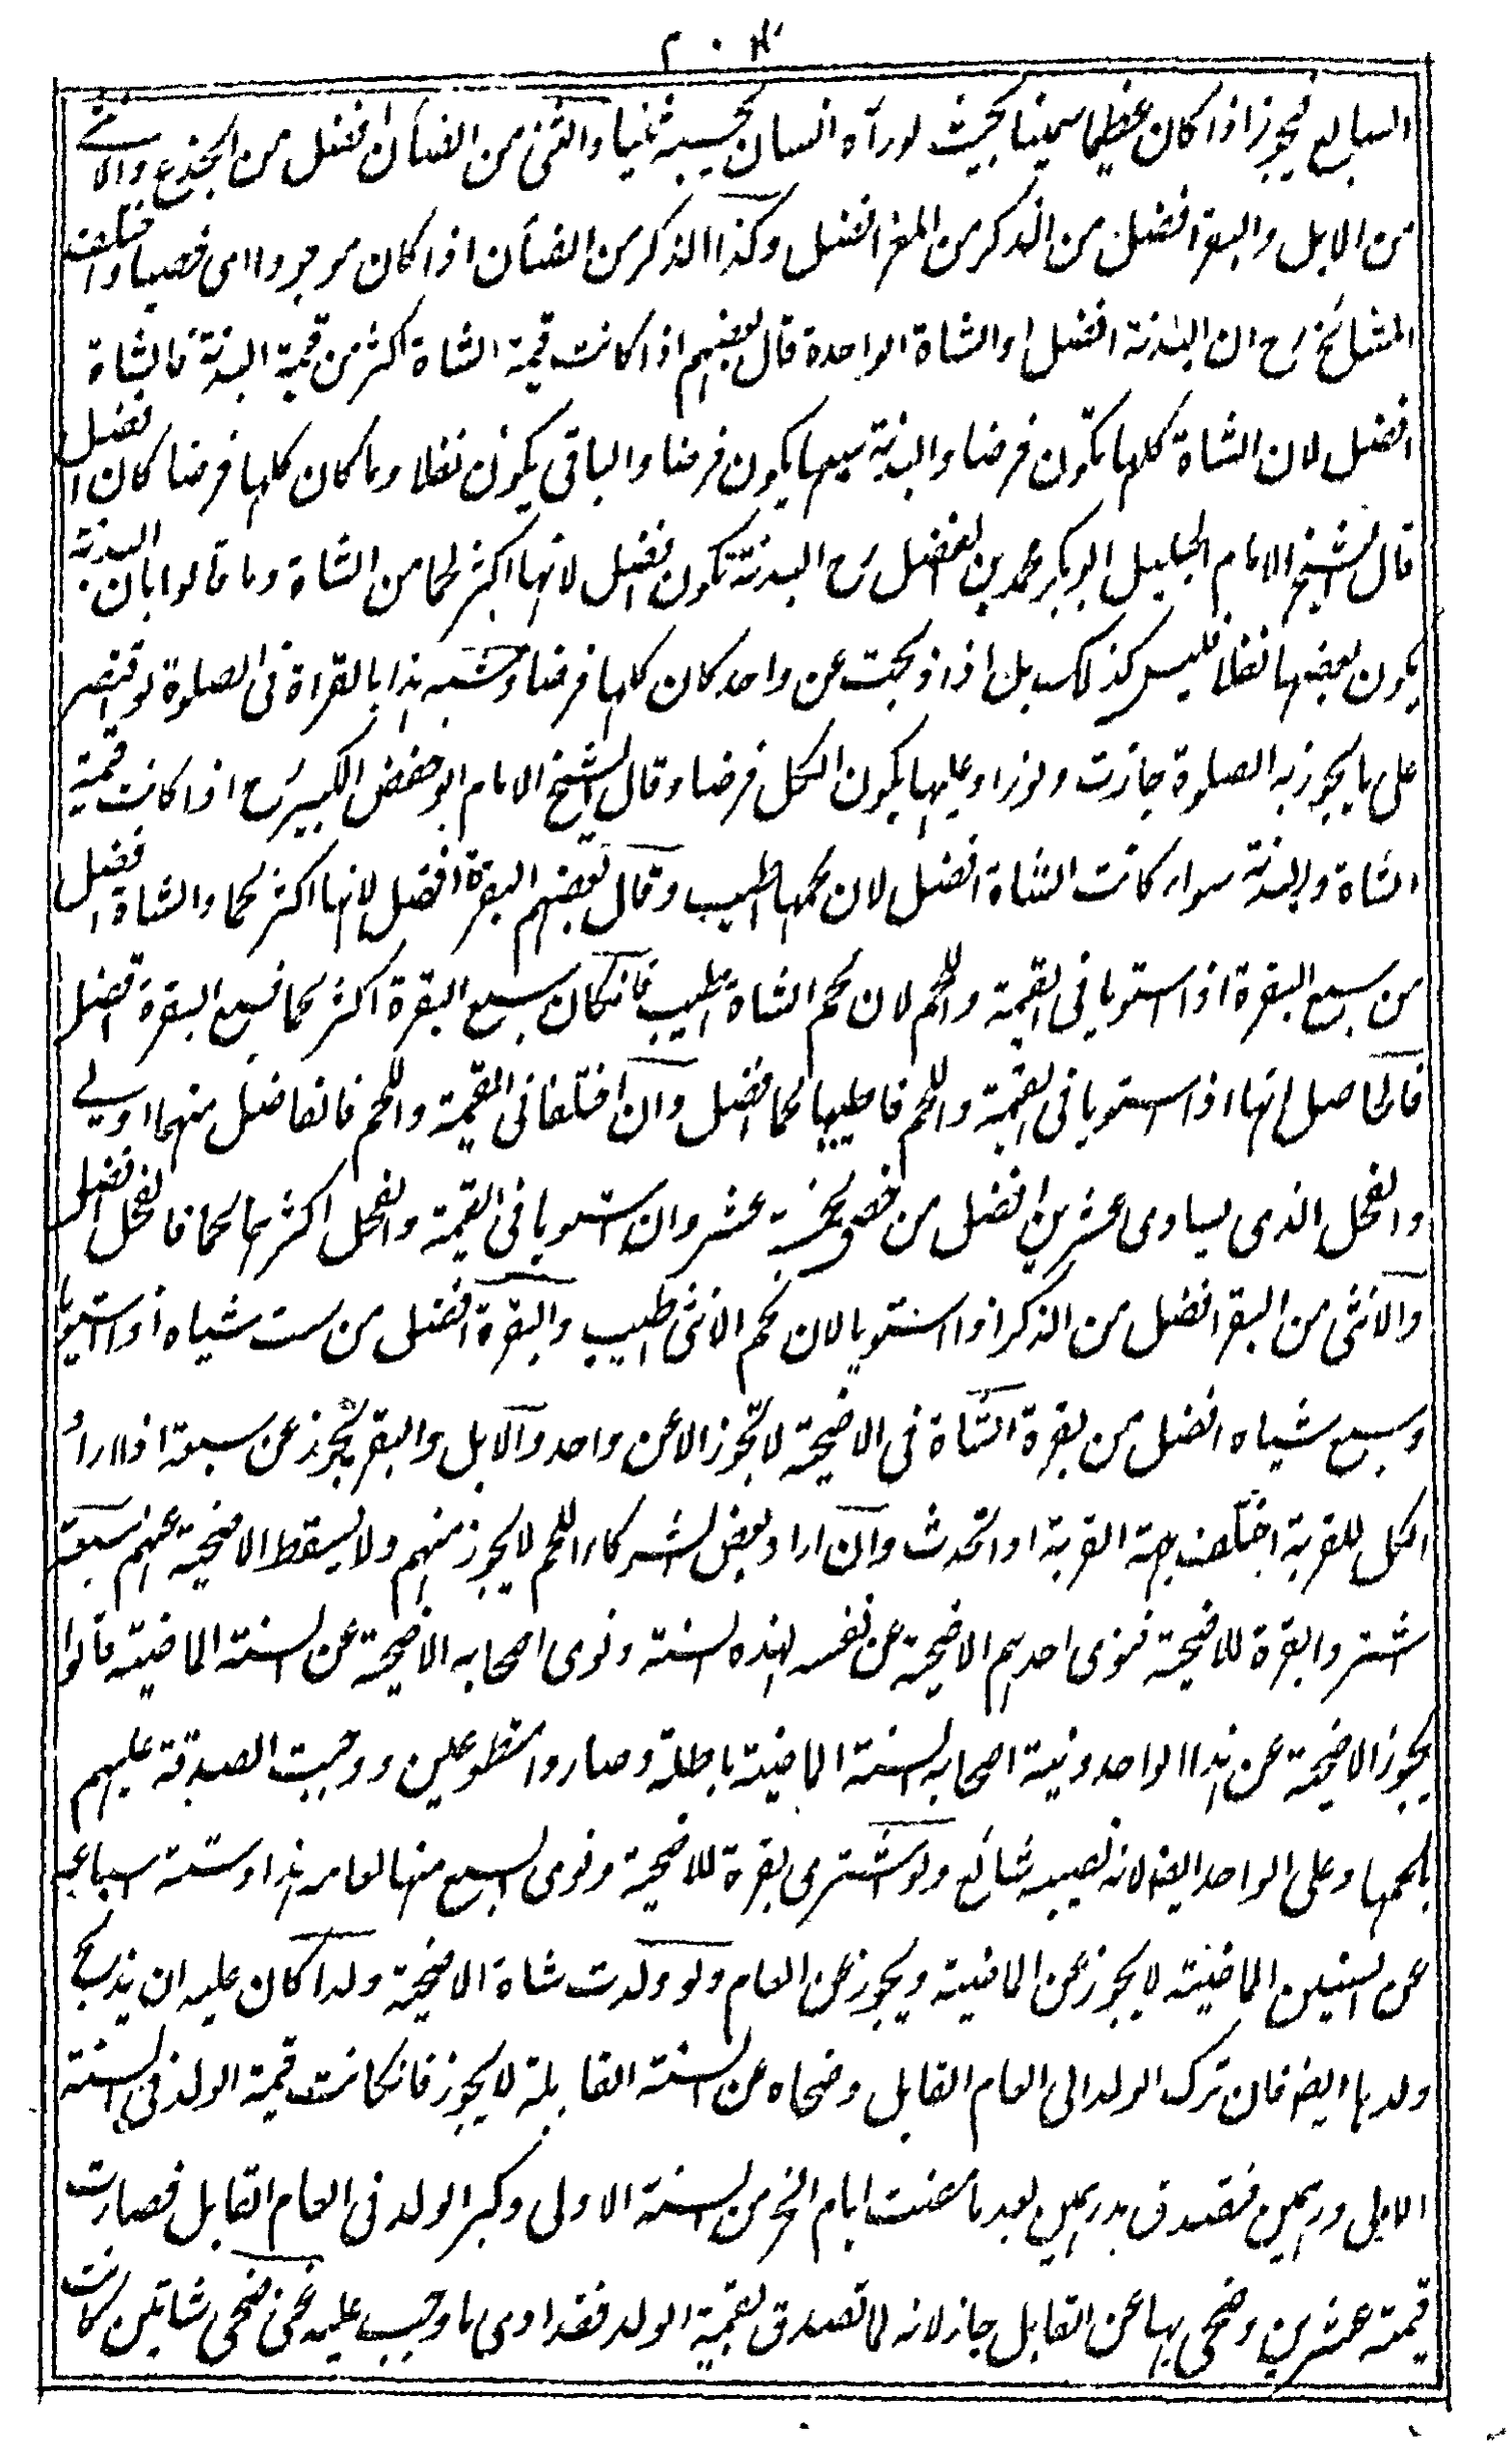 ٢٠٤
السابع فيجوز اذا كان عظيما سمينا بحيث لو رآه انسان يحسبه ثنيا والثنى من الضأن افضل من الجذع والانثى
من الابل والبقر افضل من الذكر من المعز افضل وكذا الذكر من الضأن اذا كان موجودا اى خصيا واختلف
المشائخ رح ان البدنة افضل او الشاة الواحدة قال بعضهم اذا كانت قيمة الشاة اكثر من قيمة البدنة فالشاة
افضل لان الشاة كلها تكون فرضا والبدنة سبعها يكون فرضا والباقى يكون نفلا وما كان كلها فرضا كان افضل
قال الشيخ الامام الجليل ابو بكر محمد بن الفضل رح البدنة تكون افضل لانها اكثر لحما من الشاة وما قالوا بان البدنة
يكون بعضها نفلا فليس كذلك بل اذا ذبحت عن واحد كان كلها فرضا وشبه هذا بالقراءة فى الصلوة لو اقتصر
على ما يجوز به الصلوة جازت ولو زاد عليها يكون الكل فرضا وقال الشيخ الامام ابو حفص الكبير رح اذا كانت قيمة
الشاة والبدنة سواء كانت الشاة افضل لان لحمها اطيب وقال بعضهم البقرة افضل لانها اكثر لحما والشاة افضل
من سبع البقرة اذا استويا فى القيمة واللحم لان لحم الشاة اطيب فانكان سبع البقرة اكثر لحما فسبع البقرة افضل
فالحاصل انها اذا استويا فى القيمة واللحم فاطيبها لحما افضل وان اختلفا فى القيمة واللحم فالفاضل منهما اولى
والفحل الذى يساوى عشرين افضل من خصى بخمسة عشر وان استويا فى القيمة والفحل اكثرهما لحما فالفحل افضل
والانثى من البقر افضل من الذكر اذا استويا لان لحم الانثى اطيب والبقرة افضل من ست شياه اذا استويا
وسبع شياه افضل من بقرة الشاة فى الاضحية لا تجوز الا عن واحد والابل والبقر يجوز عن سبعة اذا اراد
الكل للقربة اختلف جهة القربة او اتحدت وان اراد بعض الشركاء اللحم لا يجوز منهم ولا يسقط الاضحية عنهم سبعة
اشتروا بقرة للاضحية فنوى احدهم الاضحية عن نفسه لهذه السنة ونوى اصحابه الاضحية عن السنة الماضية قالوا
يجوز الاضحية عن هذا الواحد ونية اصحابه السنة الماضية باطلة وصاروا متطوعين ووجبت الصدقة عليهم
بلحمها وعلى الواحد ايض لان نصيبه شائع ولو اشترى بقرة للاضحية ونوى السبع منها لعامه هذا وستة اسباعه
عن السنين الماضية لا يجوز عن الماضية ويجوز عن العام ولو ولدت شاة الاضحية ولدا كان عليه ان يذبح
ولدها ايض فان ترك الولد الى العام القابل وضحاه عن السنة القابلة لا يجوز فانكانت قيمة الولد فى السنة
الاولى درهمين فتصدق بدرهمين بعد ما مضت ايام النحر من السنة الاولى وكبر الولد فى العام القابل فصارت
قيمته عشرين وضحى بها عن القابل جاز لانه لما تصدق بقيمة الولد فقد ادى ما وجب عليه غنى ضحى شاتين كانت